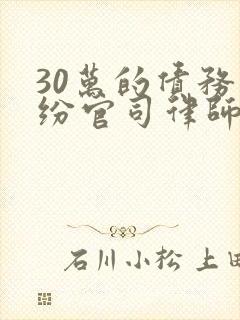 30萬的債務
紛官司律師
石川小松 上田